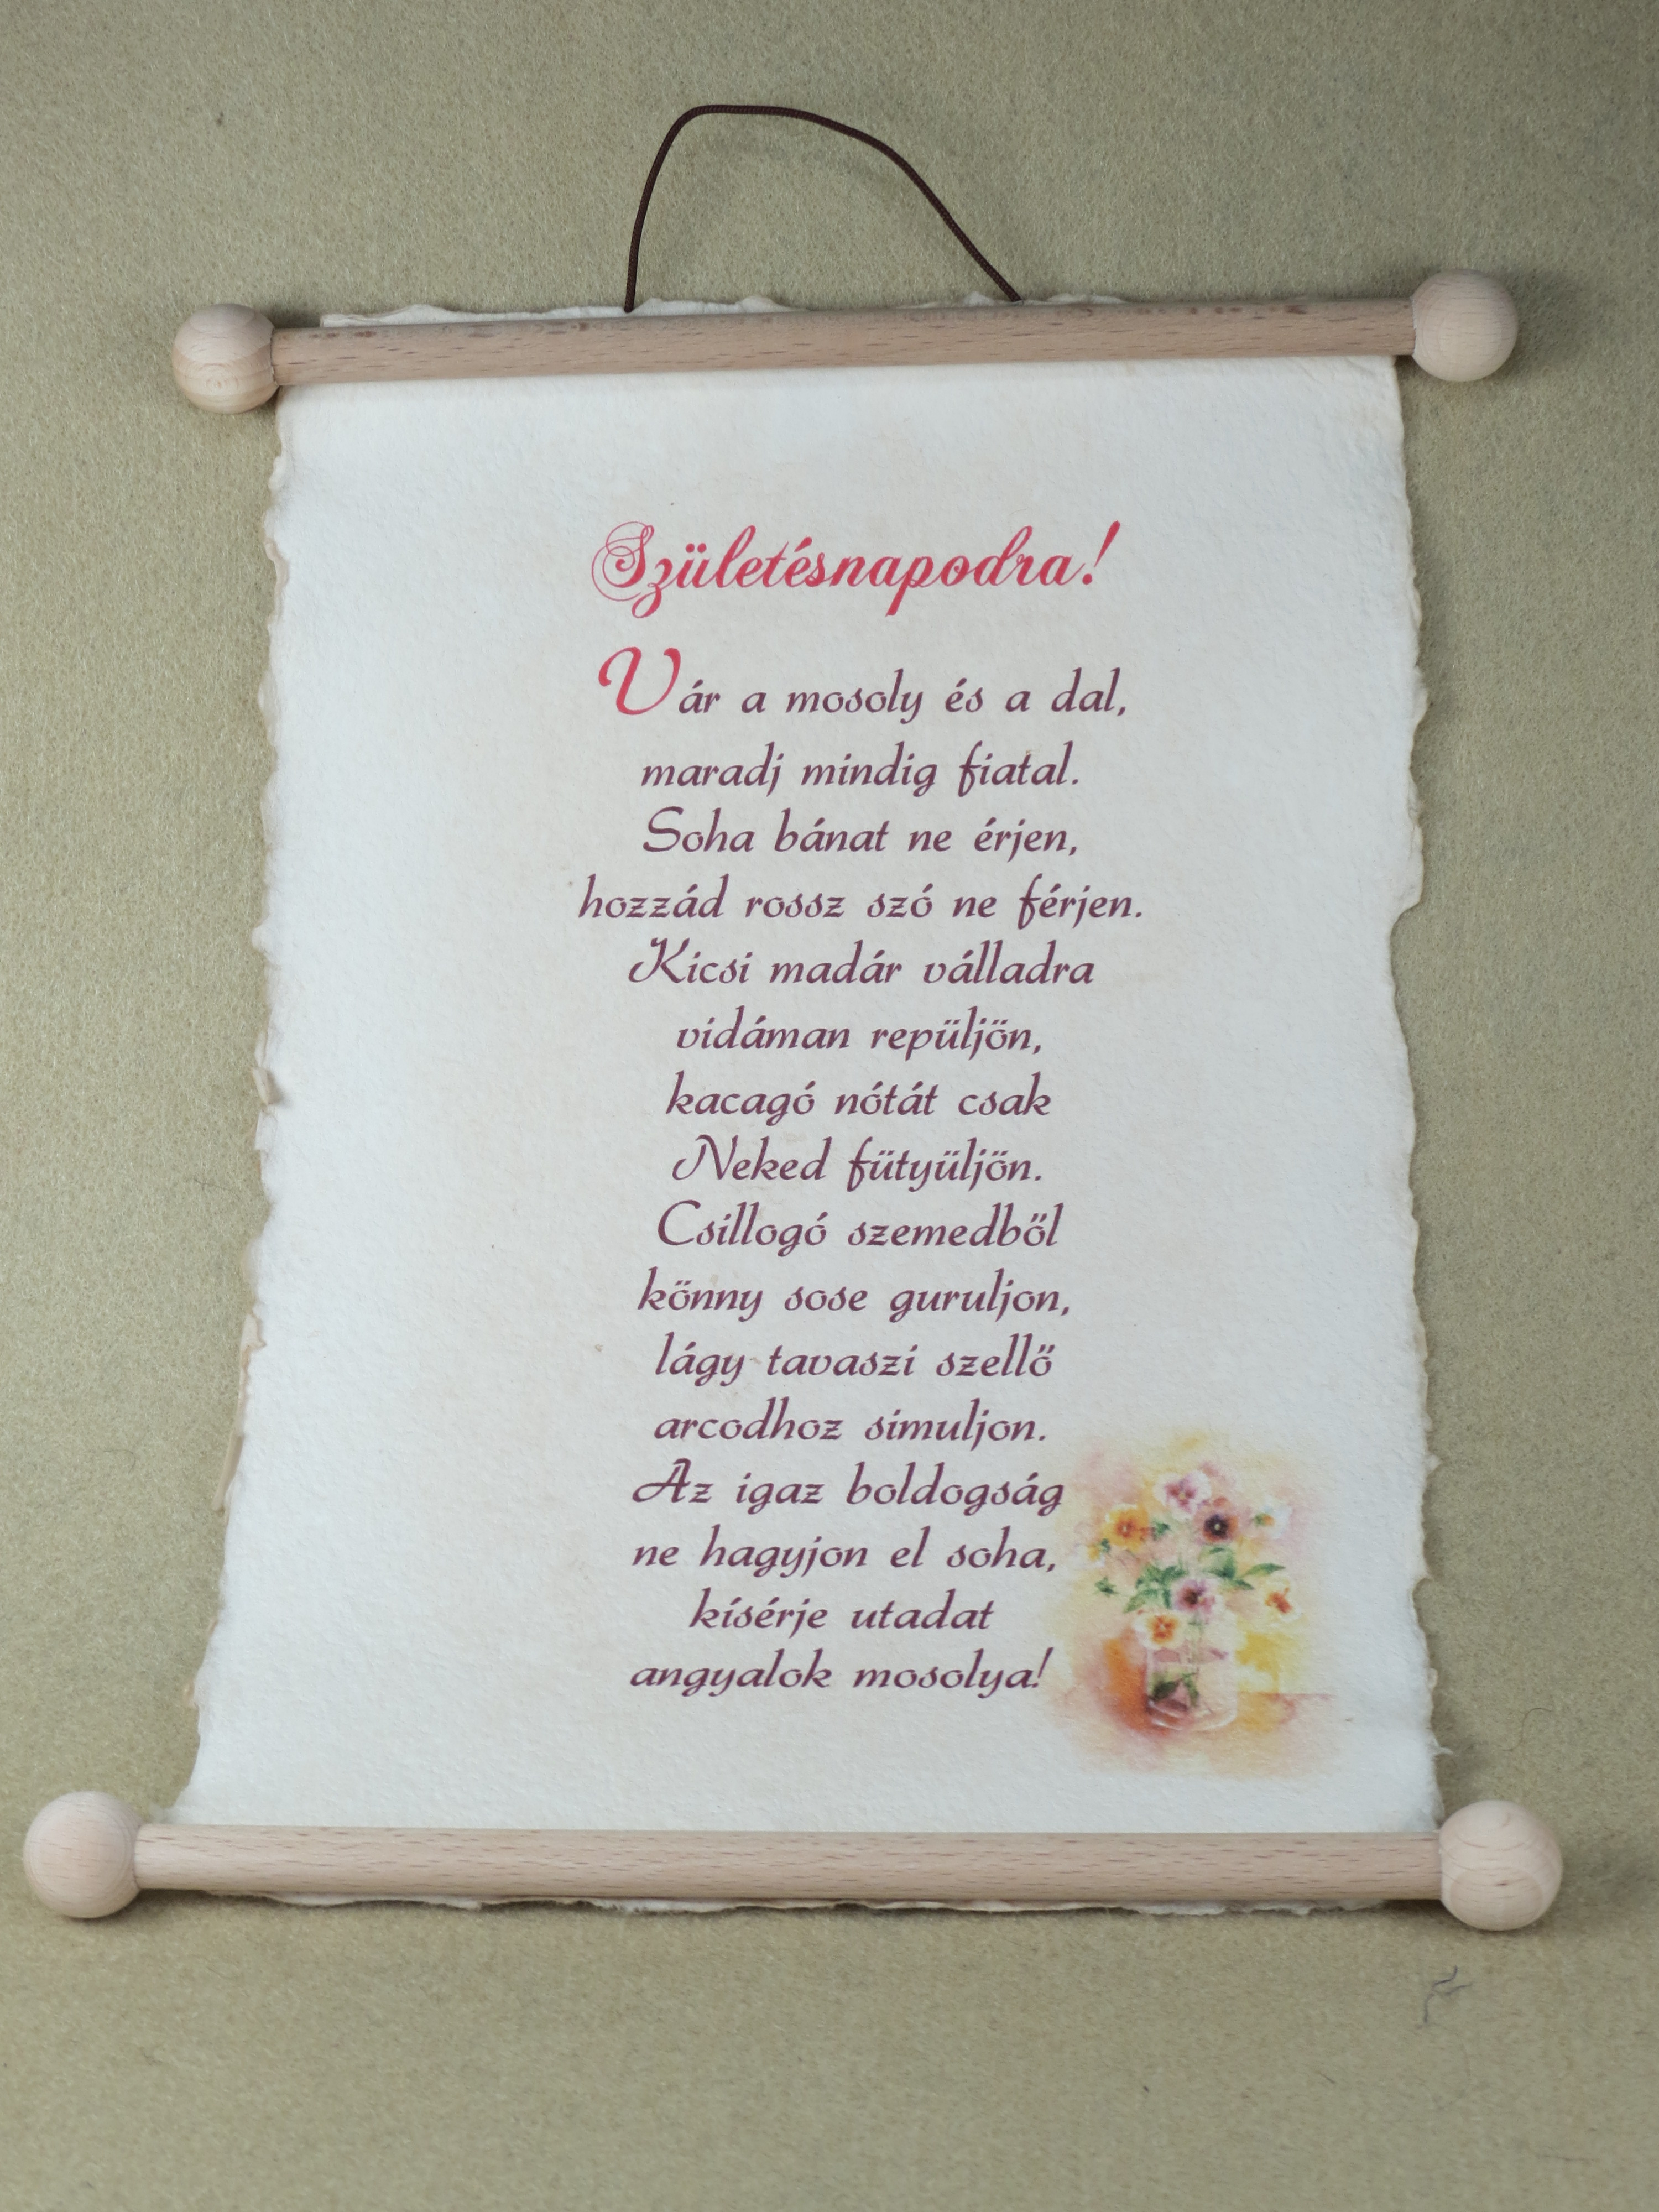 Születésnapodra!
Vár a mosoly és a dal,
maradj mindig fiatal.
Soha bánat ne érjen,
hozzád rossz szó ne férjen.
Kicsi madár válladra
vidáman repüljön,
kacagó nótát csak
Neked fütyüljön.
Csillogó szemedből
könny sose guruljon,
lágy tavaszi szellő
arcodhoz simuljon.
Az igaz boldogság
ne hagyjon el soha,
kísérje utadat
angyalok mosolya!